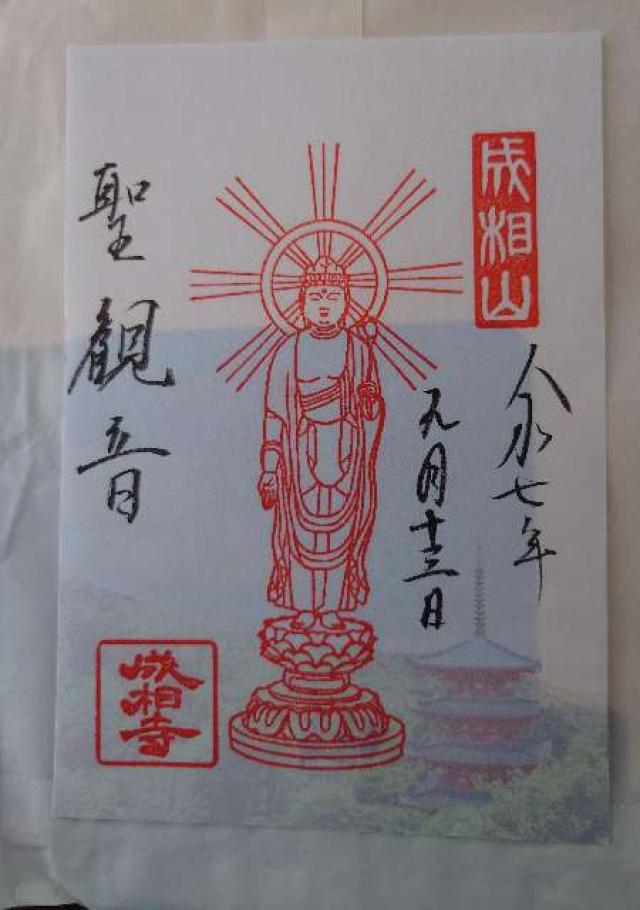 成相山
令和七年
九月十三日
聖観音
成相寺